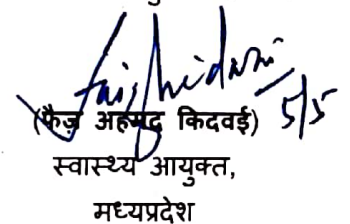 (फैज़ अहमद किदवई) 5/5
स्वास्थ्य आयुक्त,
मध्यप्रदेश